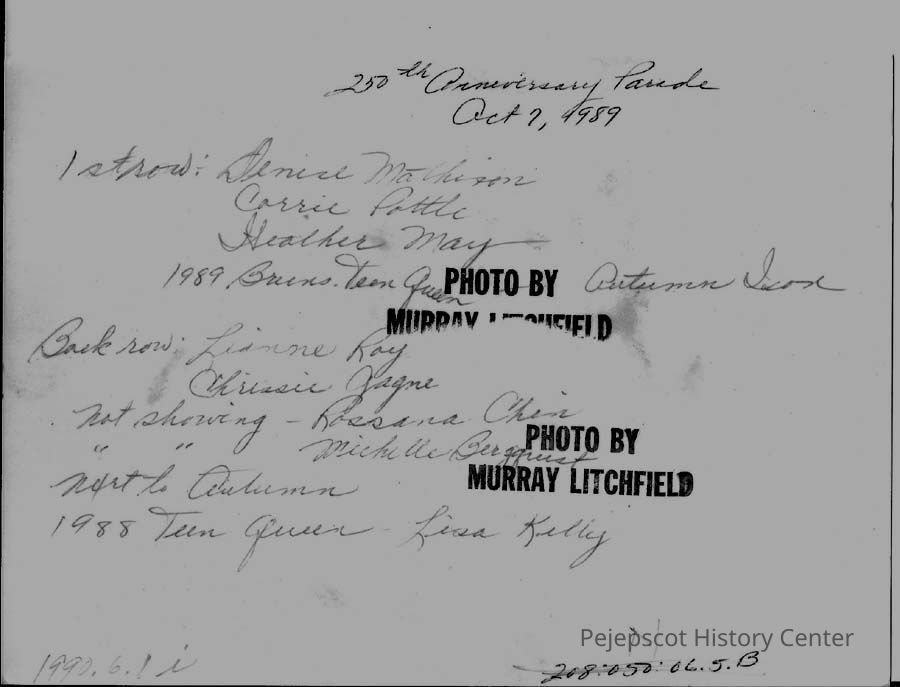 250th Anniversary Parade
Oct 7, 1989
1st row: Denise Mathison
Corrie Pottle
Heather May
1989 Bruns. Teen Queen Autumn Ison
PHOTO BY
MURRAY LITCHFIELD
Back row: Lianne Roy
Chrissie Gagne
Not showing - Rossana Chin
" " Michelle Bergquist
PHOTO BY
MURRAY LITCHFIELD
Next to Autumn
1988 Teen Queen - Lisa Kelly
Pejepscot History Center
1990.6.1 i
208.050.06.5.B